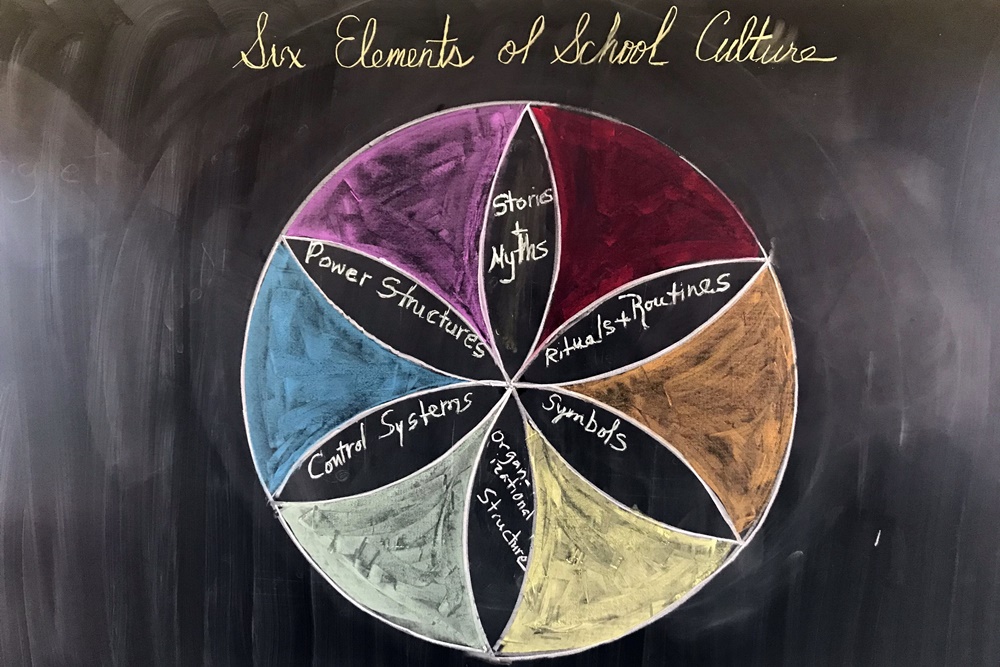 Six Elements of School Culture
Stories
+
Myths
Rituals + Routines
Symbols
Organ-
izational
Structure
Control Systems
Power Structures